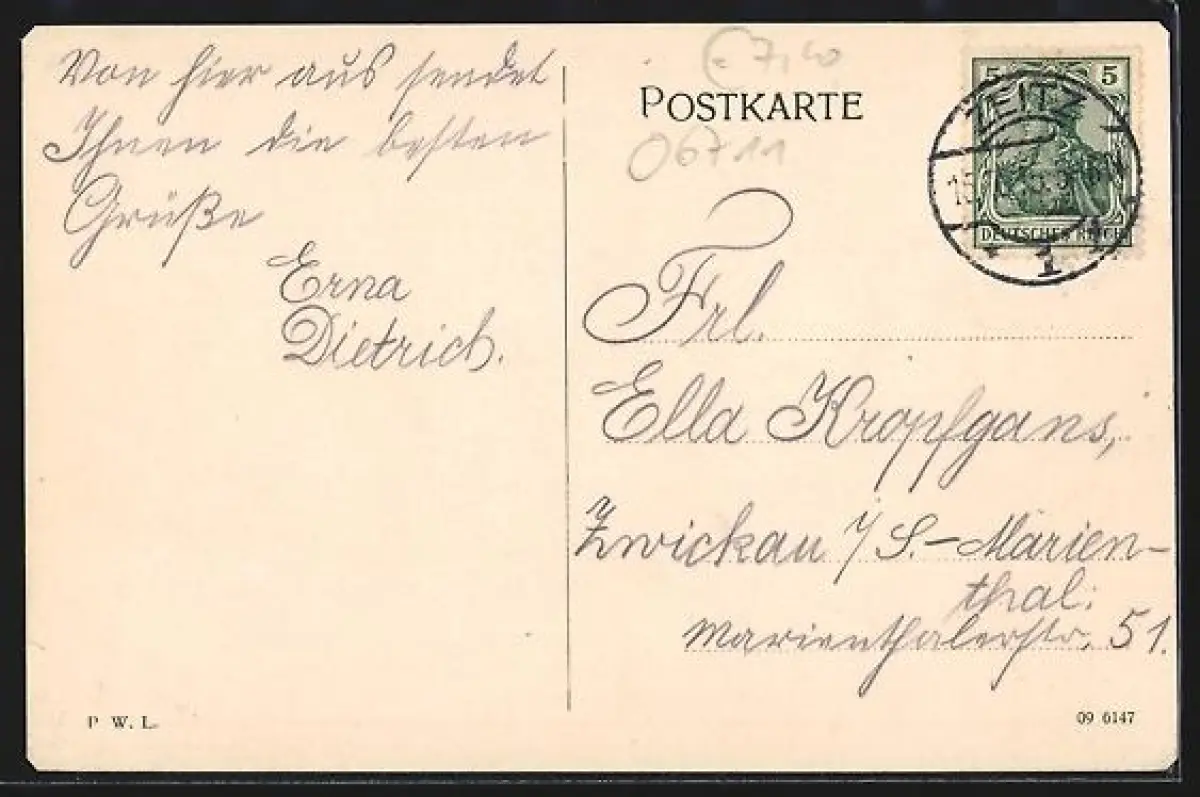 Von hier aus sendet
Ihnen die besten
Grüße
Erna
Dietrich.
P. W. L.
POSTKARTE
06711
5 5
DEUTSCHES REICH
ZEITZ
1
Frl.
Ella Kropfgans,
Zwickau i/S.-Marien-
thal.
Marienthalerstr. 51.
09 6147